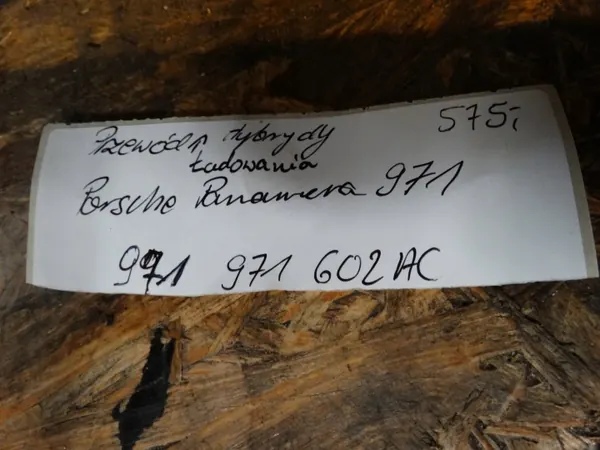 Przewód hybrydy 575,-
Ładowania
Porsche Panamera 971
971 971 602 AC